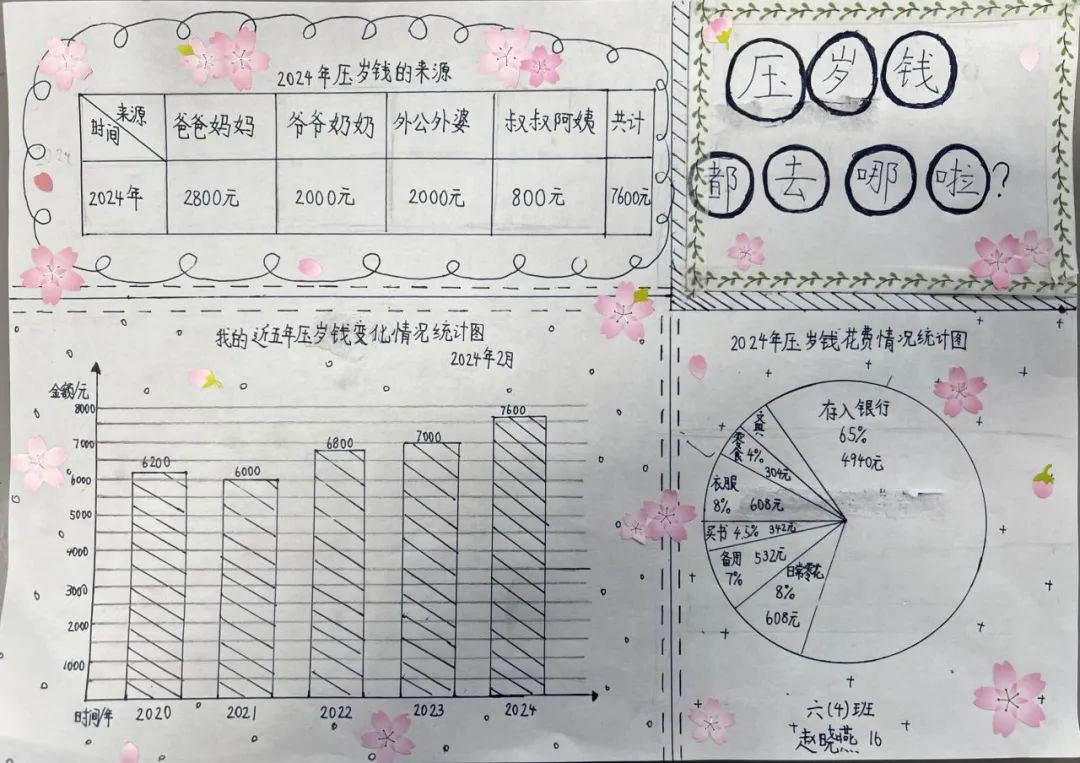 2024年压岁钱的来源
来源
时间
爸爸妈妈 爷爷奶奶 外公外婆 叔叔阿姨 共计
2024年 2800元 2000元 2000元 800元 7600元
压岁钱
都去哪啦?
我的近五年压岁钱变化情况统计图
2024年2月
金额/元
8000
7000
6000
5000
4000
3000
2000
1000
6200
6000
6800
7000
7600
时间/年 2020 2021 2022 2023 2024
2024年压岁钱花费情况统计图
存入银行
65%
4940元
文具
零食
4%
304元
衣服
8% 608元
买书 4.5% 342元
备用 532元
7%
日常零花
8%
608元
六(4)班
赵晓燕 16